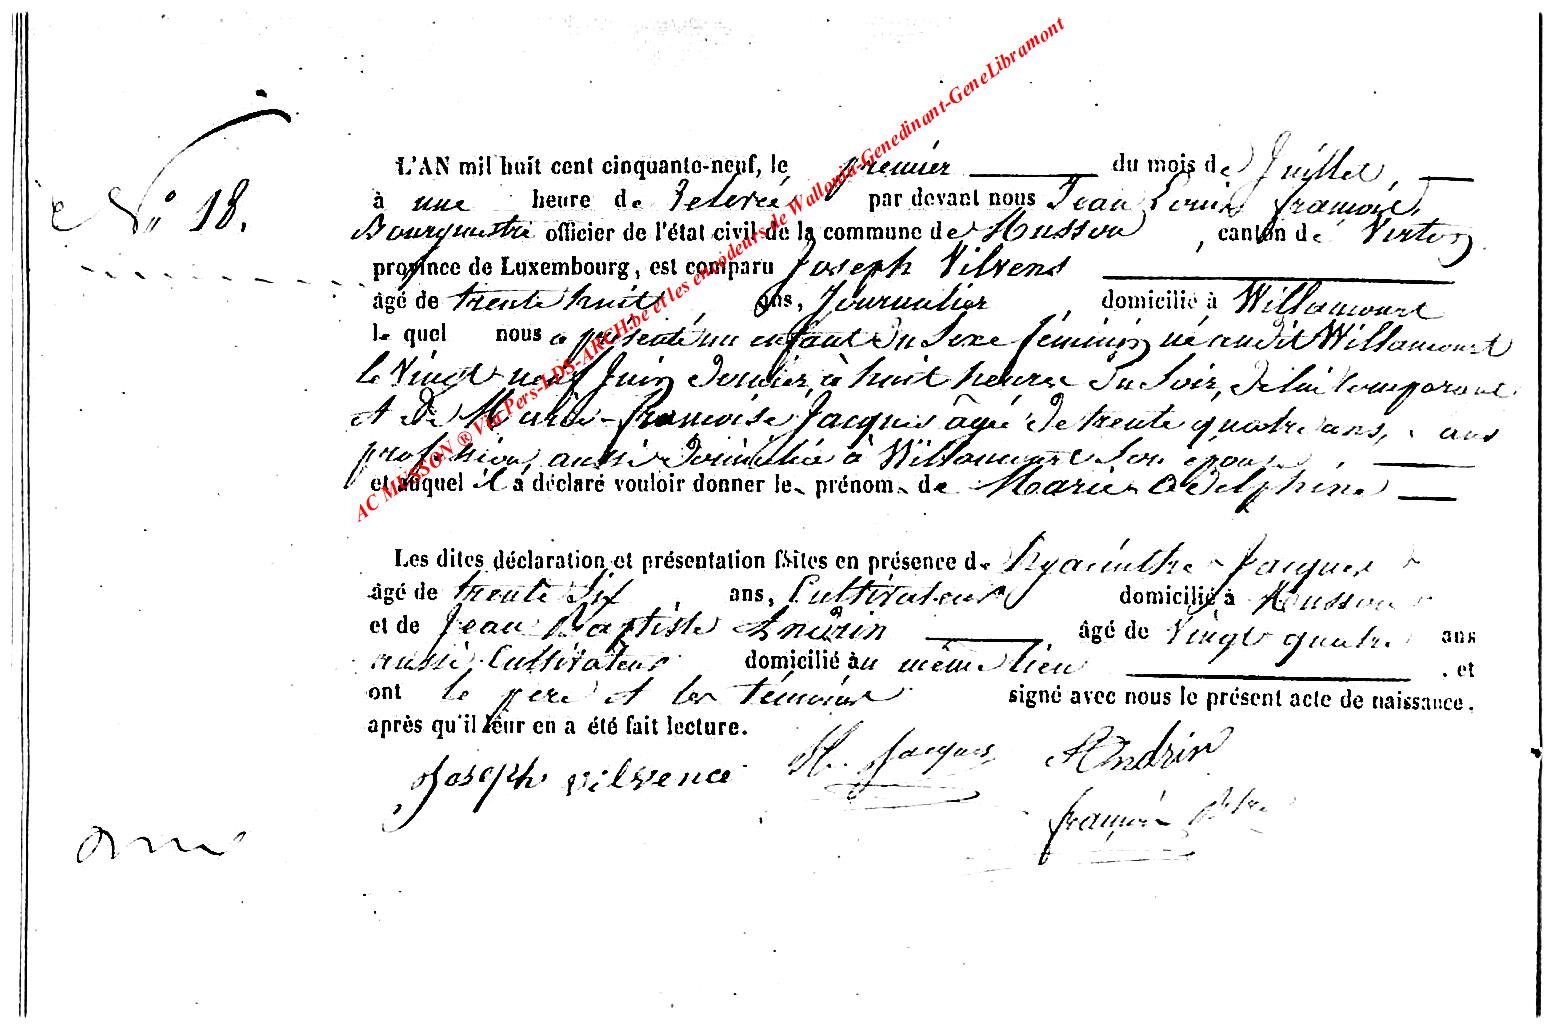 L'AN mil huit cent cinquante-neuf, le premier du mois de Juillet,
N° 18.
à une heure de relevée par devant nous Jean Louis François,
Bourgmestre officier de l'état civil de la commune de Musson, canton de Virton
province de Luxembourg, est comparu Joseph Vilvens
âgé de trente huit ans, Journalier domicilié à Willancourt
le quel nous a présenté un enfant du Sexe féminin né audit Willancourt
le Vingt neuf Juin dernier, à huit heures du Soir, de lui Comparant
et de Marie-Françoise Jacques âgée de trente quatre ans, sans
profession, aussi domiciliée à Willancourt Son épouse
et auquel il a déclaré vouloir donner les prénoms de Marie Adelphine
Les dites déclaration et présentation faites en présence de Hyacinthe Jacques
âgé de trente Six ans, Cultivateur domicilié à Musson
et de Jean Baptiste Andrin âgé de Vingt quatre ans
aussi Cultivateur domicilié au même lieu et
ont le père et les témoins signé avec nous le présent acte de naissance,
après qu'il leur en a été fait lecture.
Joseph vilvence H. Jacques Andrin
françois
AC MUSSON ® Via Pers-LDS-ARCH.be et les encodeurs de Wallonia-Genedinant-GeneLibramont